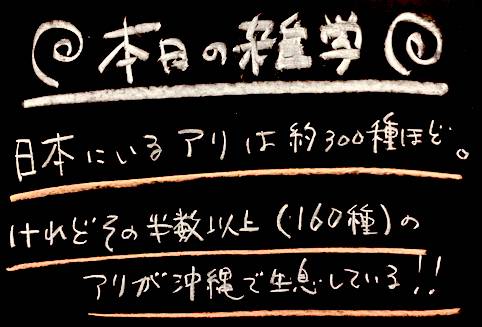 本日の雑学
日本にいるアリは約300種ほど。
けれどその半数以上(160種)の
アリが沖縄で生息している!!